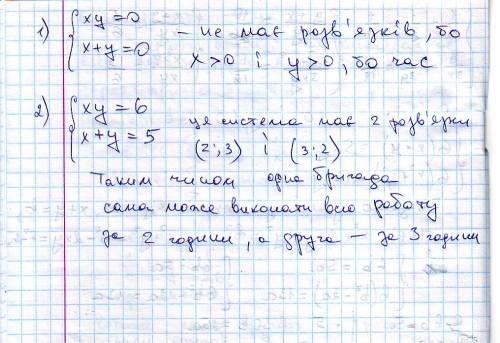 1) { xy = 0
x+y = 0 – не має розв'язків, бо
x>0 і y>0, бо час
2) { xy = 6
x+y = 5 ця система має 2 розв'язки
(2;3) і (3;2)
Таким чином одна бригада
сама може виконати всю роботу
за 2 години, а друга – за 3 години